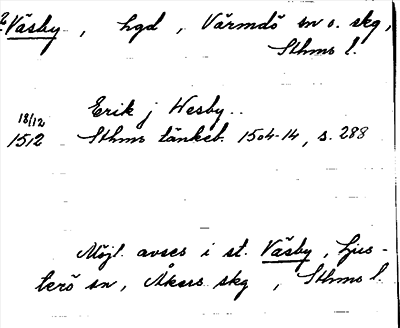 Väsby, hgd, Värmdö sn o. skg,
Sthms l.
Erik j Wesby..
18/12
1512 Sthms tänkeb. 1504-14, s. 288
Möjl. avses i st. Väsby, Ljus-
terö sn, Åkers skg, Sthms l.